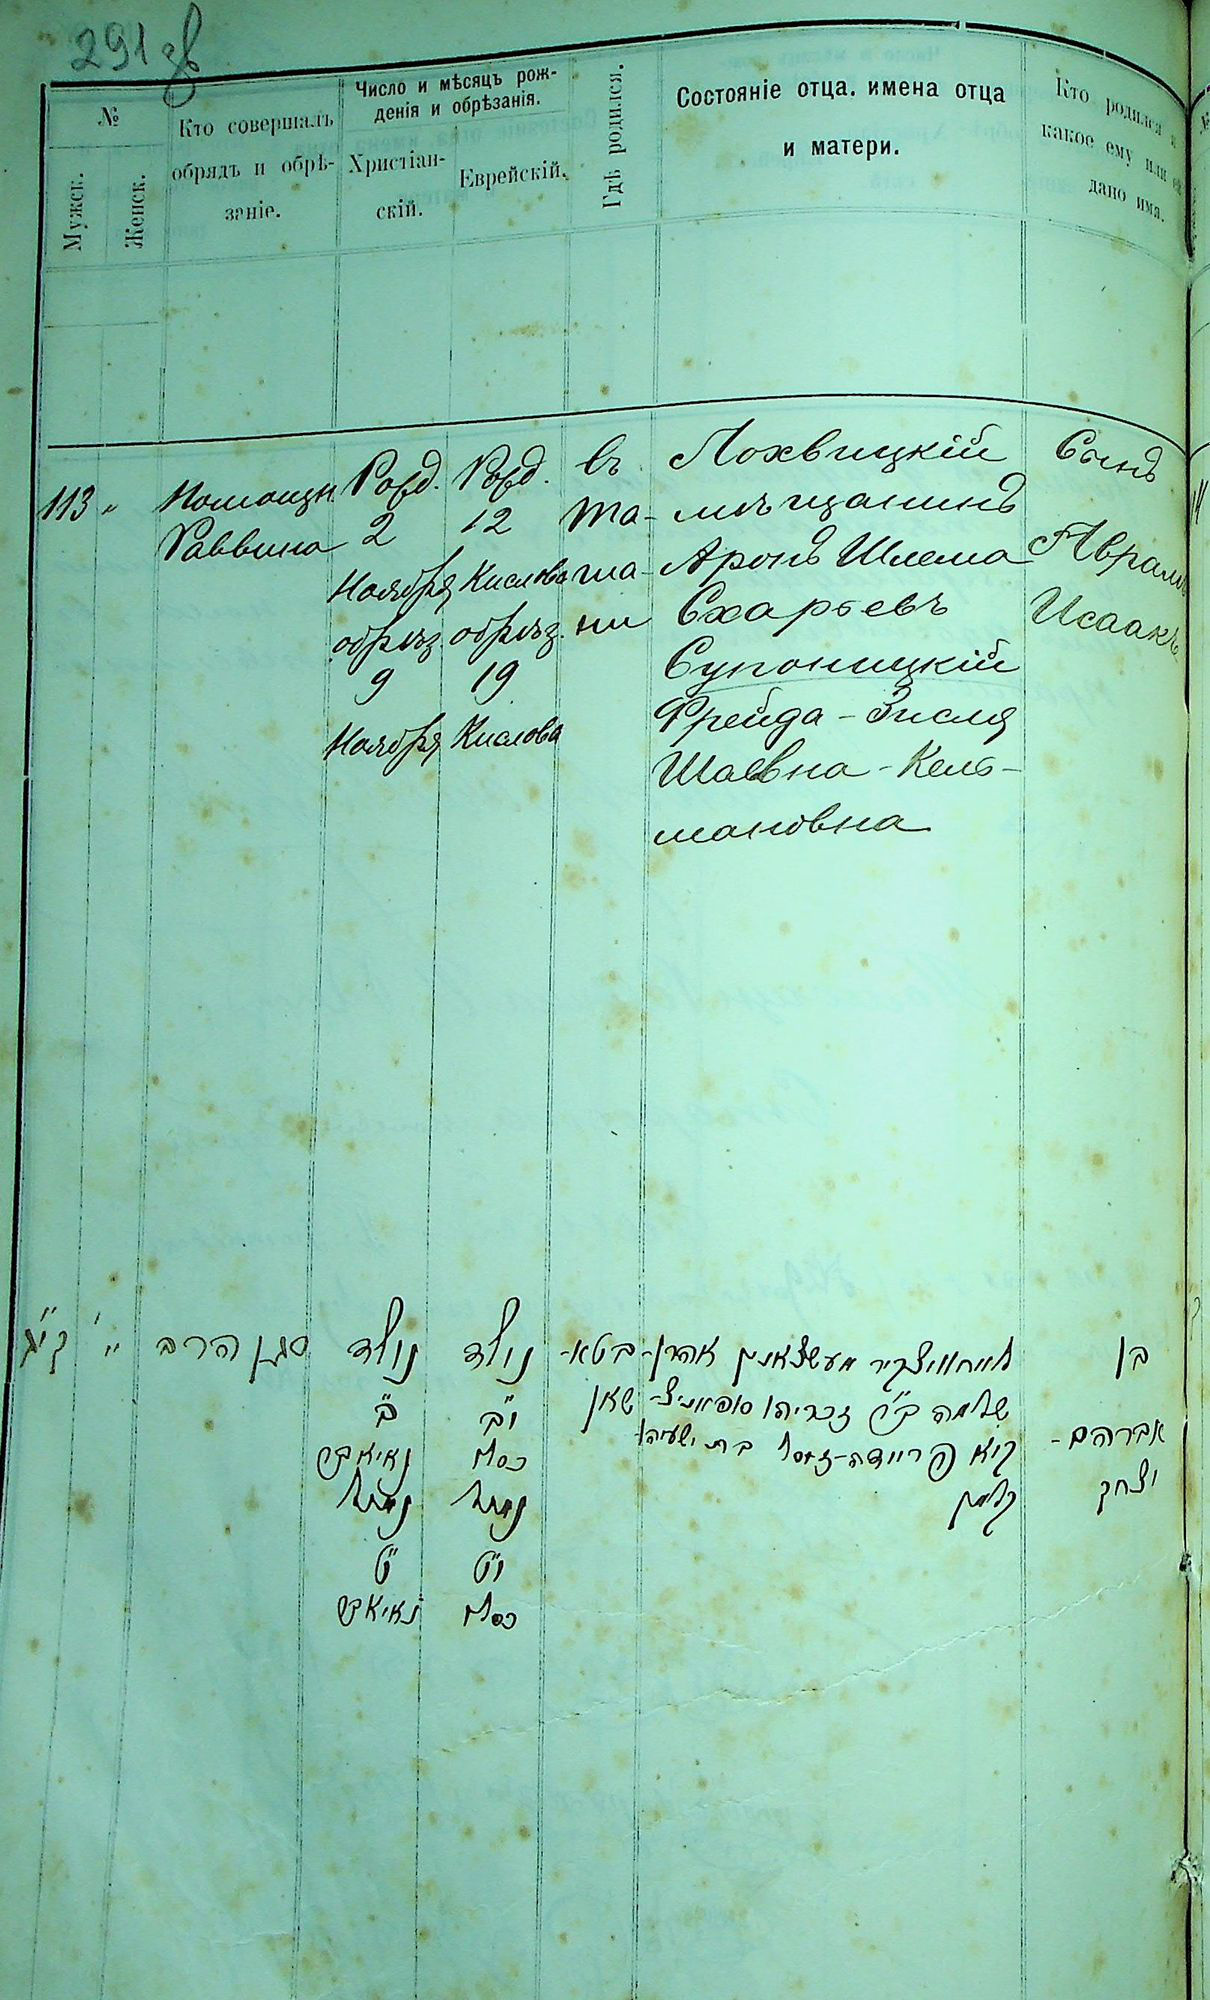 291 зв
№
Мужск.
Женск.
Кто совершалъ
обрядъ и обрѣ-
заніе.
Число и мѣсяцъ рож-
денія и обрѣзанія.
Христіан-
скій.
Еврейскій.
Гдѣ родился.
Состояніе отца, имена отца
и матери.
Кто родился и
какое ему или ей
дано имя.
113 "
Помощн.
Раввина
Рожд.
2
Ноября
обрѣз.
9
Ноября
Рожд.
12
Кислова
обрѣз.
19
Кислова
въ
Та-
ша-
ни
Лохвицкій
мѣщанинъ
Аронъ Шлема
Схарьевъ
Супоницкій
Фрейда - Зисля
Шаевна - Кель-
мановна
Сынъ
Аврамъ
Исаакъ
קי"ג
"
סגן הרב
נולד
ב'
נאיאבר
נימול
ט'
נאיאבר
נולד
י"ב
כסלו
נימול
י"ט
כסלו
בטא-
שאן
לויחוויצקיר מעשצאנין אהרן-
שלמה ב"ר זכריהו סופאניצ-
קיא פריידה-זיסל בת ישעיהו
קלמן
בן
אברהם-
יצחק